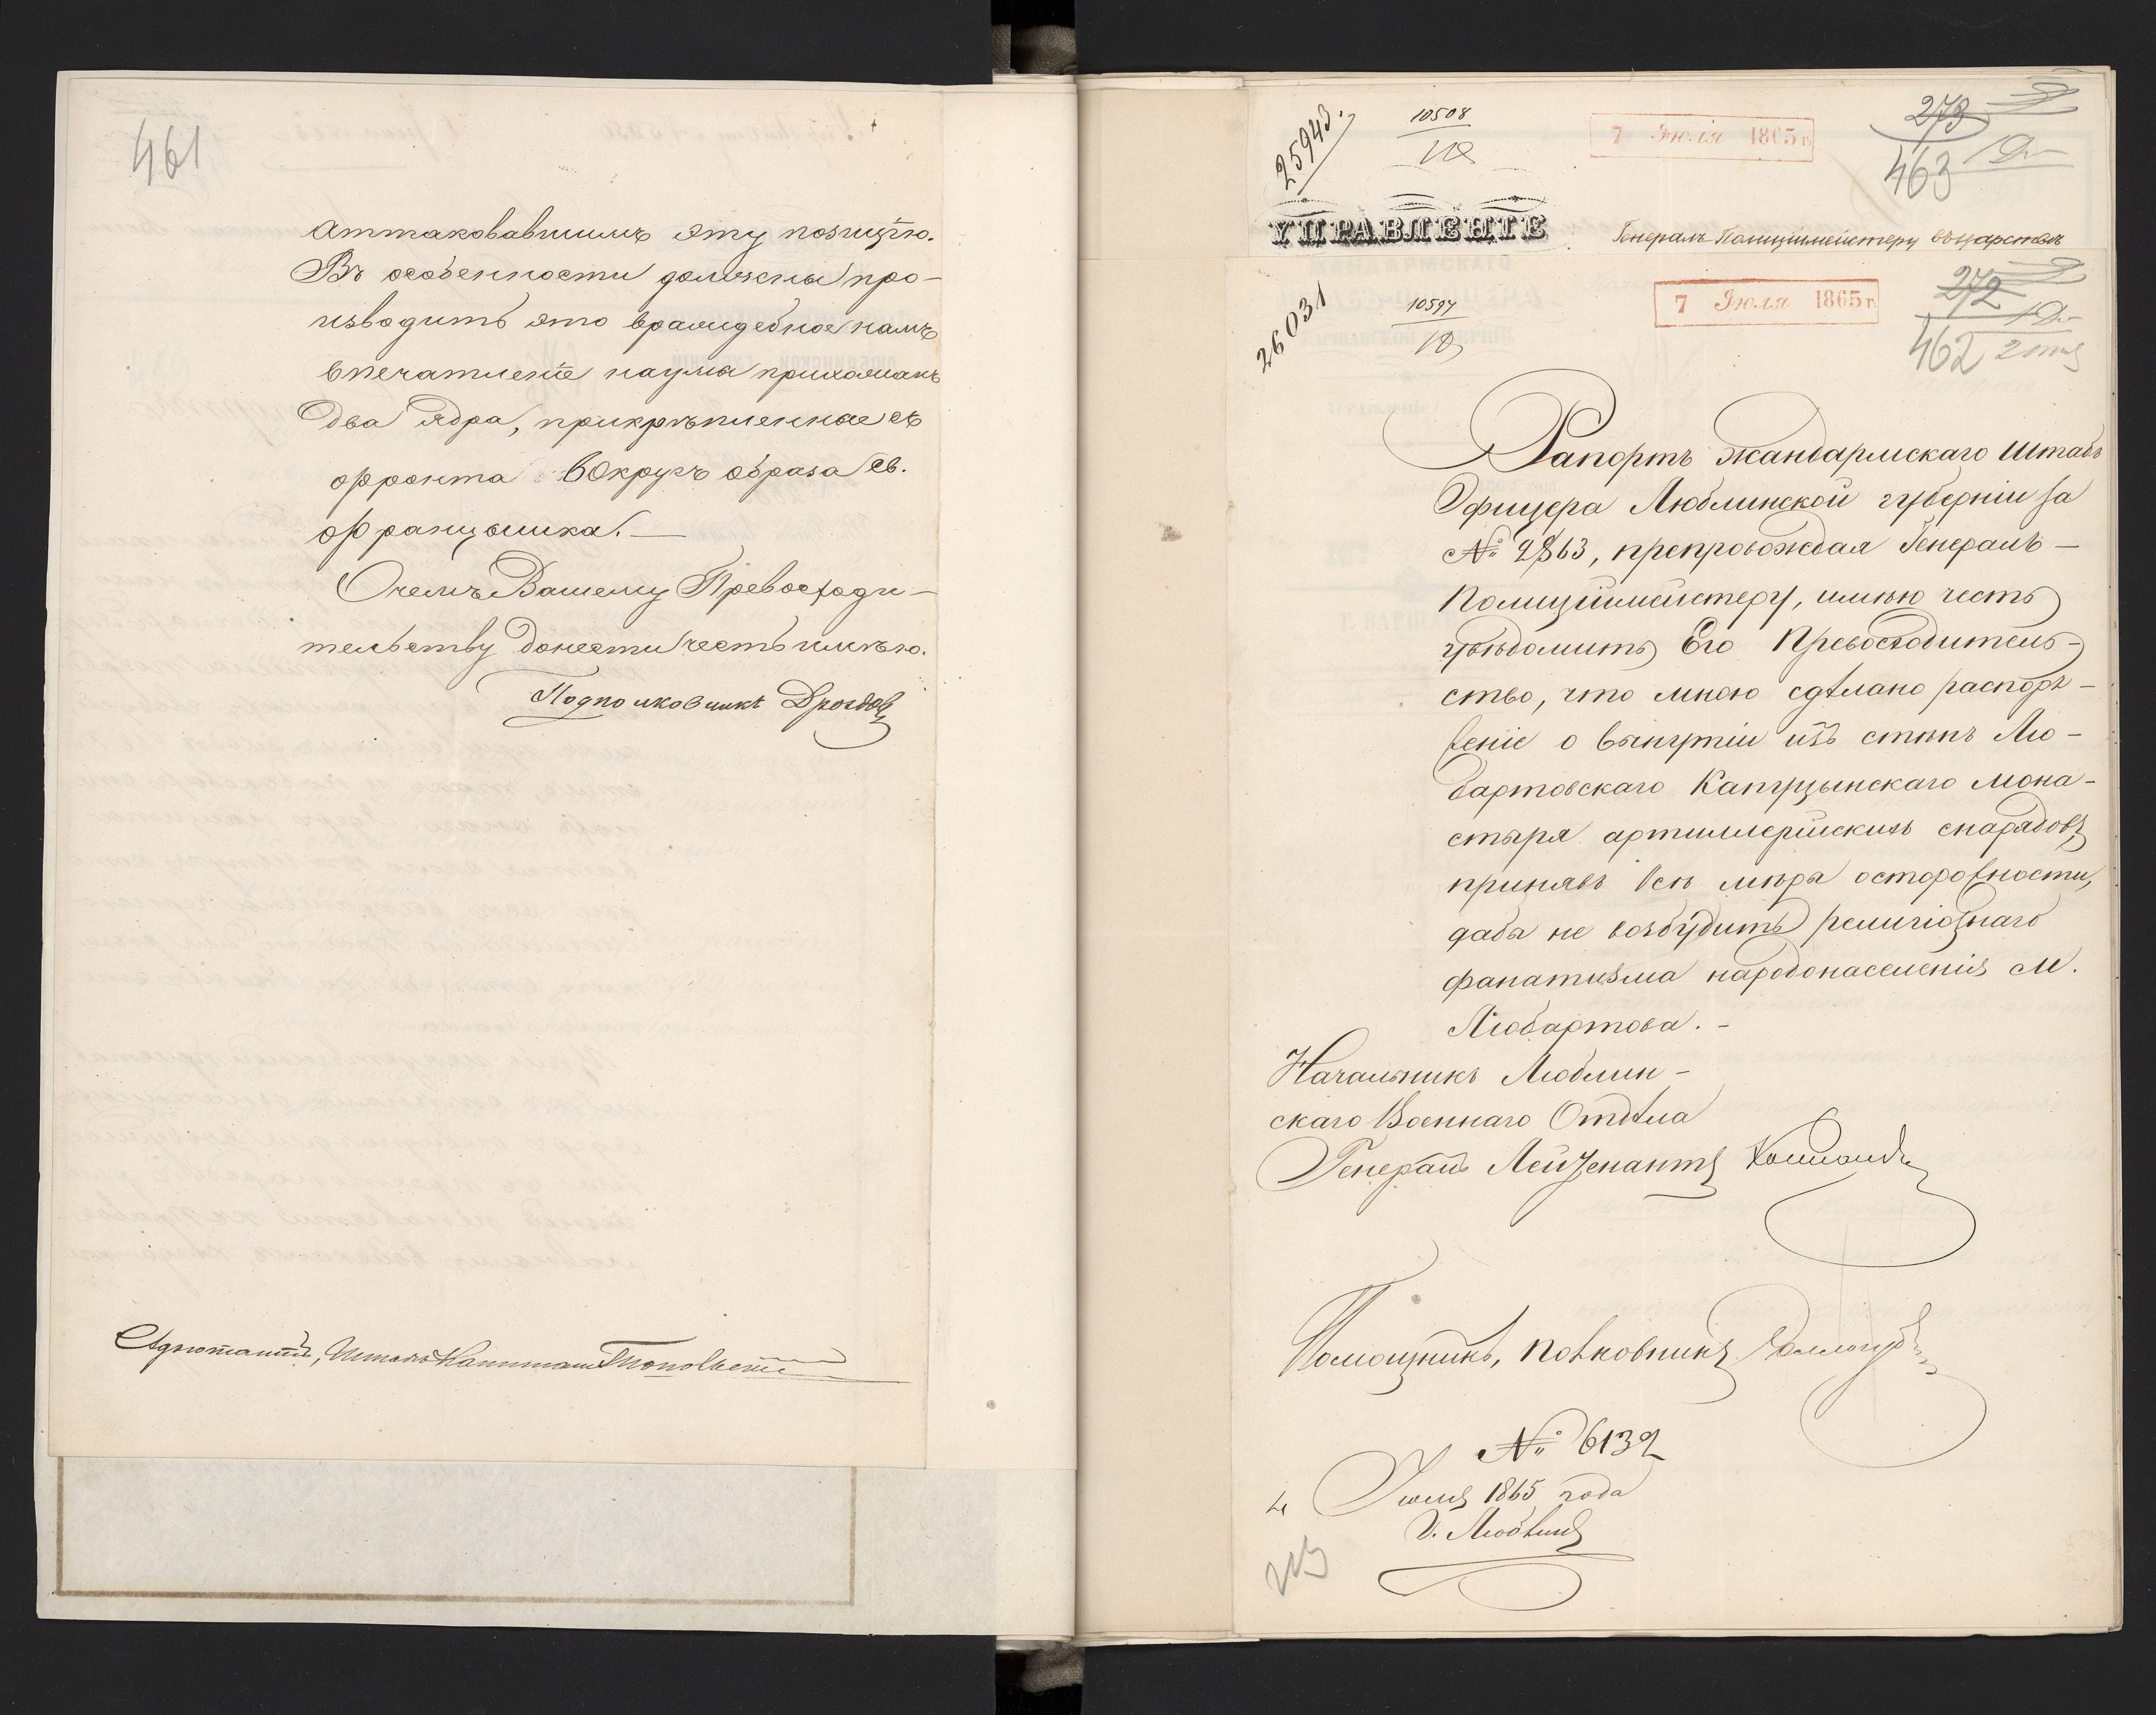 461
аттаковавшимъ эту позицію.
Въ особенности должны про-
изводить это враждебное намъ
впечатленіе наума прихожанъ
два ядра, прикрѣпленные съ
фронта вокругъ образа Св.
Францышка. —
О чемъ Вашему Превосходи-
тельству донести честь имѣю.
Подполковникъ Дроздов
Адъютантъ, Штабсъ Капитанъ
25943.
10508
7 Июля 1865 г.
273
463
УПРАВЛЕНІЕ
Генералъ Полиціймейстеру въ Царствѣ
26031
10594
7 Июля 1865 г.
272
462
Рапортъ Жандармскаго Штабъ
Офицера Люблинской губерніи за
№ 2863, препровождая Генералъ —
Полиціймейстеру, имѣю честь
увѣдомить Его Превосходитель-
ство, что мною сдѣлано распоря-
женіе о вынутіи изъ стѣнъ Лю-
бартовскаго Капуцынскаго Мона-
стыря артиллерійскихъ снарядовъ,
принявъ всѣ мѣры осторожности,
дабы не возбудить религіознаго
фанатизма народонаселенія м.
Любартова. -
Начальникъ Люблин-
скаго Военнаго Отдѣла
Генералъ Лейтенантъ
Помощникъ, Полковникъ
№ 6132
4 Июля 1865 года
г. Люблинъ